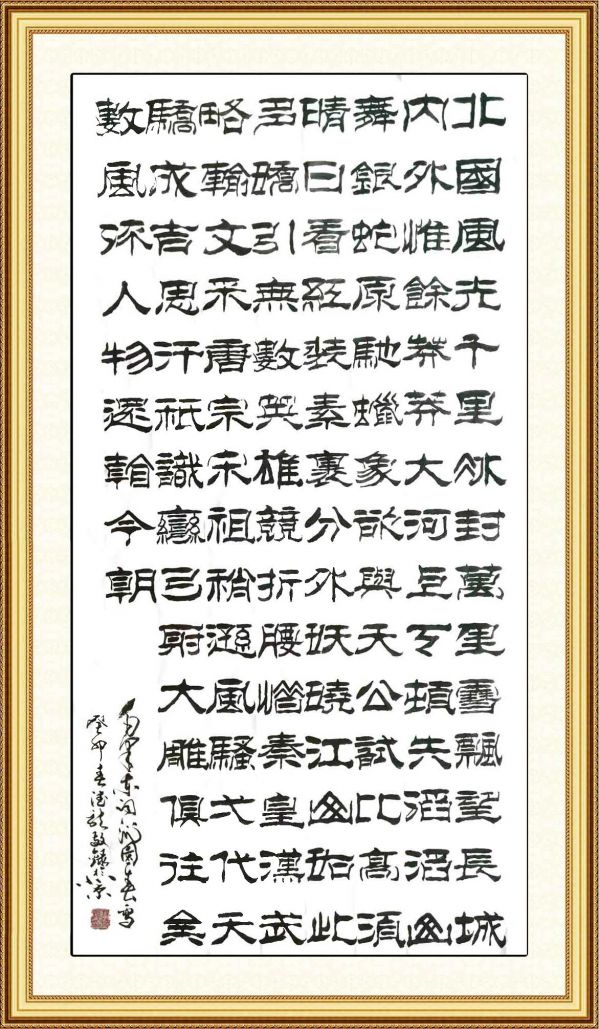 北國風光千里冰封萬里雪飄望長城
内外惟餘莽莽大河上下頓失滔滔山
舞銀蛇原馳蠟象欲與天公試比高須
晴日看紅裝素裹分外妖嬈江山如此
多嬌引無數英雄競折腰惜秦皇漢武
略輸文采唐宗宋祖稍遜風騷弌代天
驕成吉思汗祇識彎弓射大雕俱往矣
數風流人物還看今朝
毛澤東词沁園春雪
癸卯春德龍敬録於京